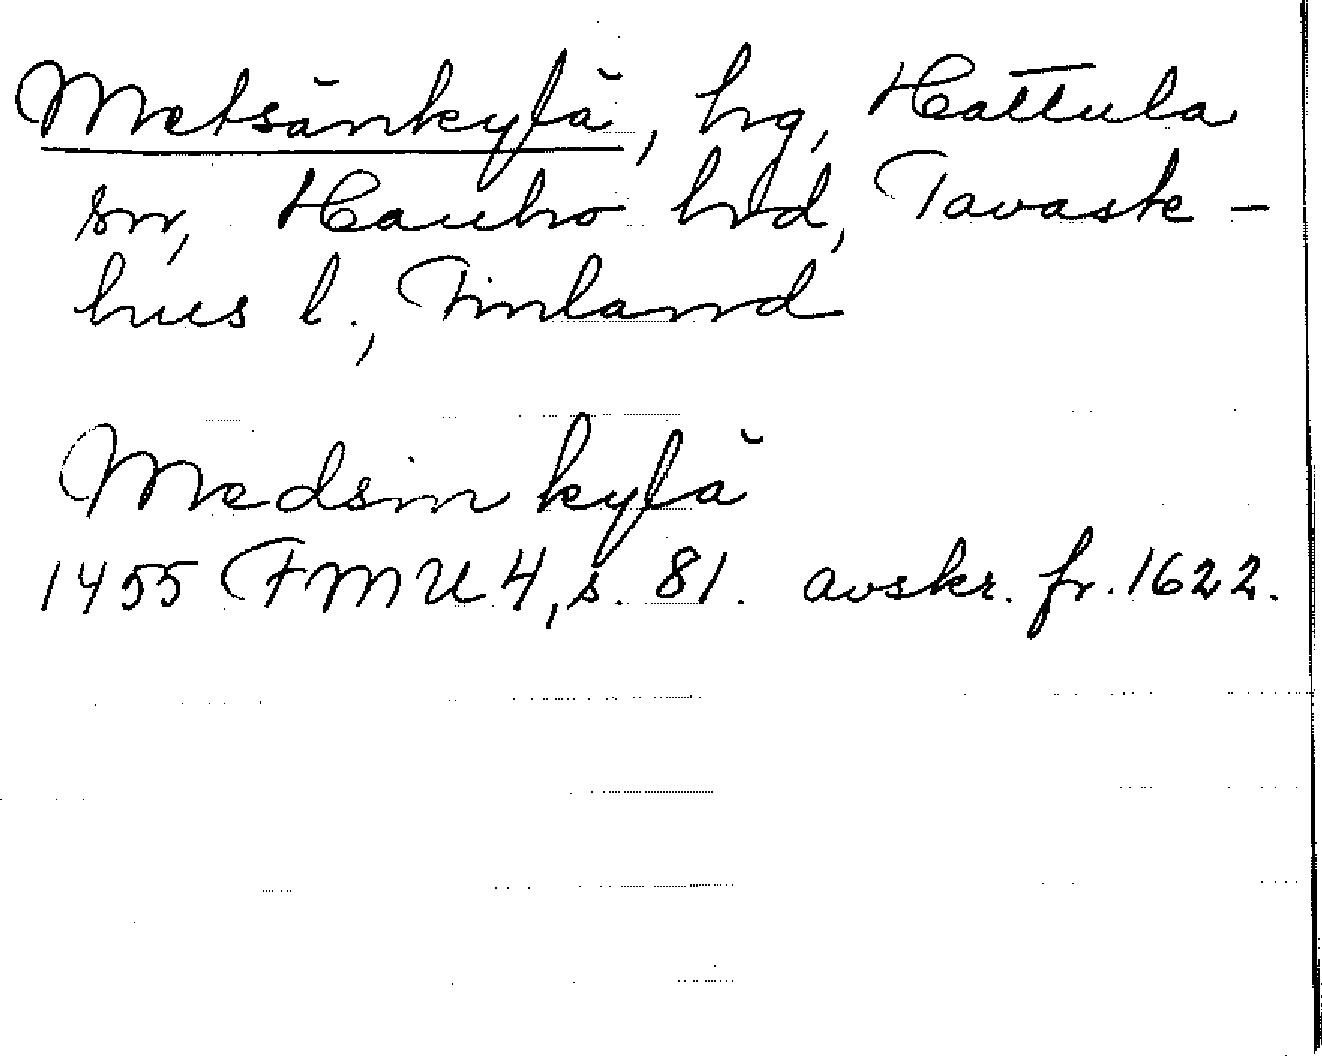 Metsänkylä, hg, Hattula
sn, Hauho hrd, Tavast-
hus l., Finland
Medsin kylä
1455 FMU 4, s. 81. avskr. fr. 1622.